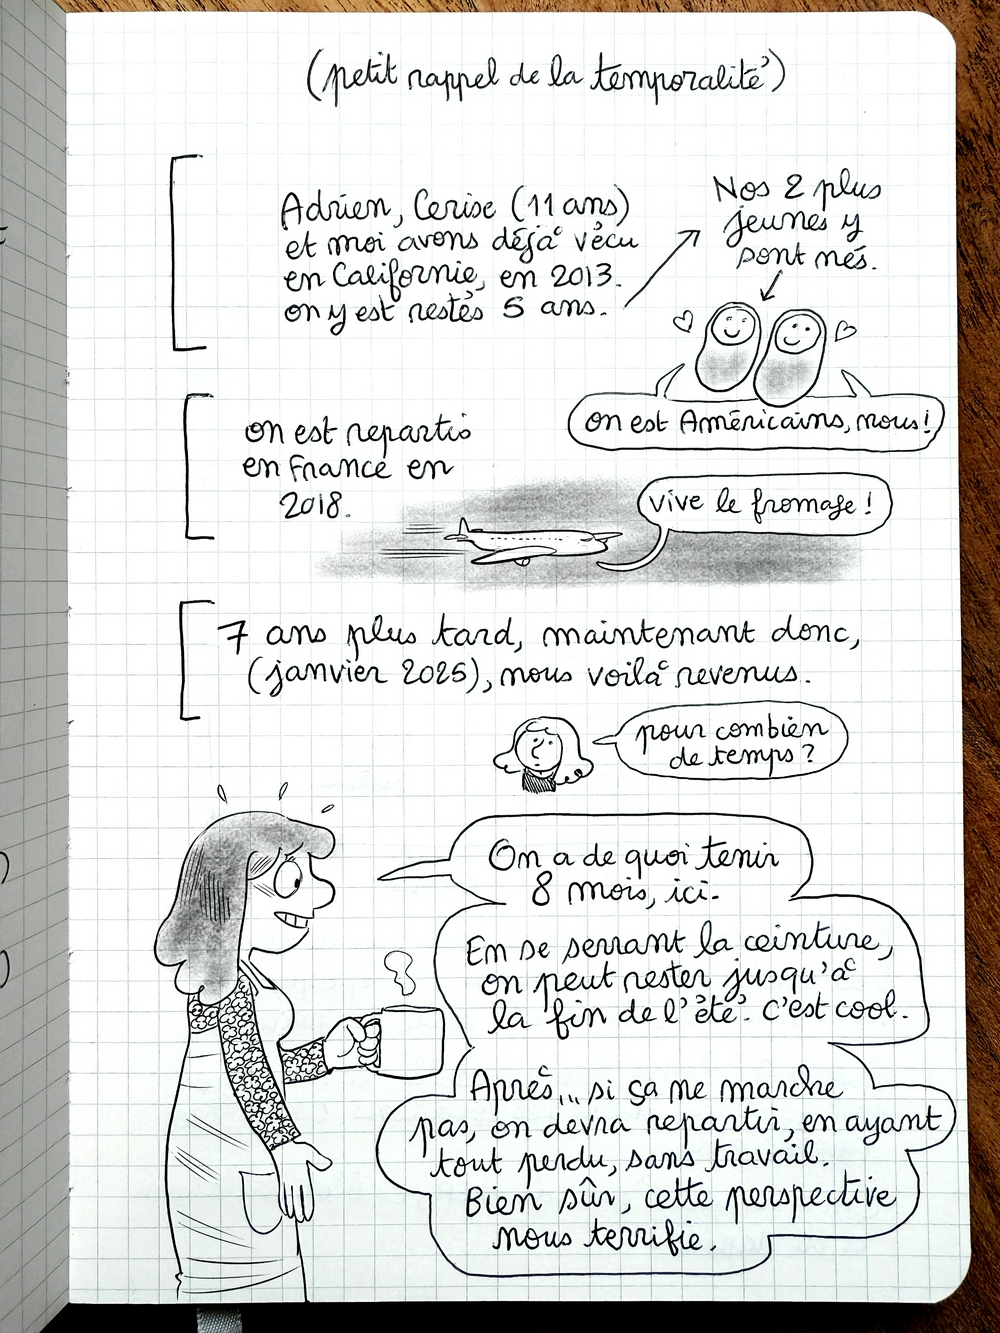 (petit rappel de la temporalité)
Adrien, Cerise (11 ans)
et moi avons déjà vécu
en Californie, en 2013.
on y est restés 5 ans.
Nos 2 plus
jeunes y
sont nés.
on est Américains, nous!
on est repartis
en France en
2018.
vive le fromage!
7 ans plus tard, maintenant donc,
(janvier 2025), nous voilà revenus.
pour combien
de temps?
On a de quoi tenir
8 mois, ici.
En se serrant la ceinture,
on peut rester jusqu'à
la fin de l'été. C'est cool.
Après... si ça ne marche
pas, on devra repartir, en ayant
tout perdu, sans travail.
Bien sûr, cette perspective
nous terrifie.